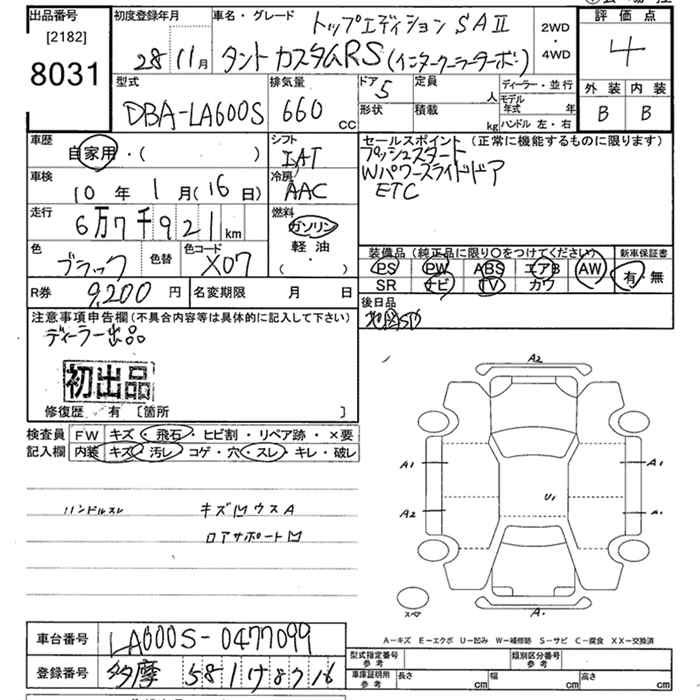 出品番号 初度登録年月 車名・グレード トップエディション SAⅡ 2WD 評価点
[2182]
8031 28年 11月 タント カスタムRS (インタークーラーターボ) ・4WD 4
型式 排気量 ドア 定員 ディーラー・並行 外装 内装
DBA-LA600S 660cc 5 人 モデル年式 年 B B
形状 積載 kg ハンドル 左・右
車歴 自家用・( ) シフト IAT セールスポイント (正常に機能するものに限ります)
プッシュスタート
Wパワースライドドア
ETC
車検 10年 1月(16日) 冷房 AAC
走行 6万7千921km 燃料 ガソリン 軽油 (・)
色 ブラック 色替 色コード X07
装備品 (純正品に限り○をつけてください) 新車保証書
PS PW ABS エアB AW 有・無
SR ナビ TV カワ
R券 9,200円 名変期限 月 日
後日品
注意事項申告欄(不具合内容等は具体的に記入して下さい)
ディーラー出品
初出品
修復歴 有 〔箇所 〕
検査員 FW キズ・飛石・ヒビ割・リペア跡・×要
記入欄 内装 キズ・汚レ・コゲ・穴・スレ・キレ・破レ
ハンドルスレ キズMウスA
ロアサポートM
A2
A1 A1
U1
A2 A1
スペア A1
A-キズ E-エクボ U-凹み W-補修跡 S-サビ C-腐食 XX-交換済
車台番号 LA600S-0477099
登録番号 多摩 581 い 8716
型式指定番号 参考 類別区分番号 参考
車庫証明用 参考 長さ cm 幅 cm 高さ cm